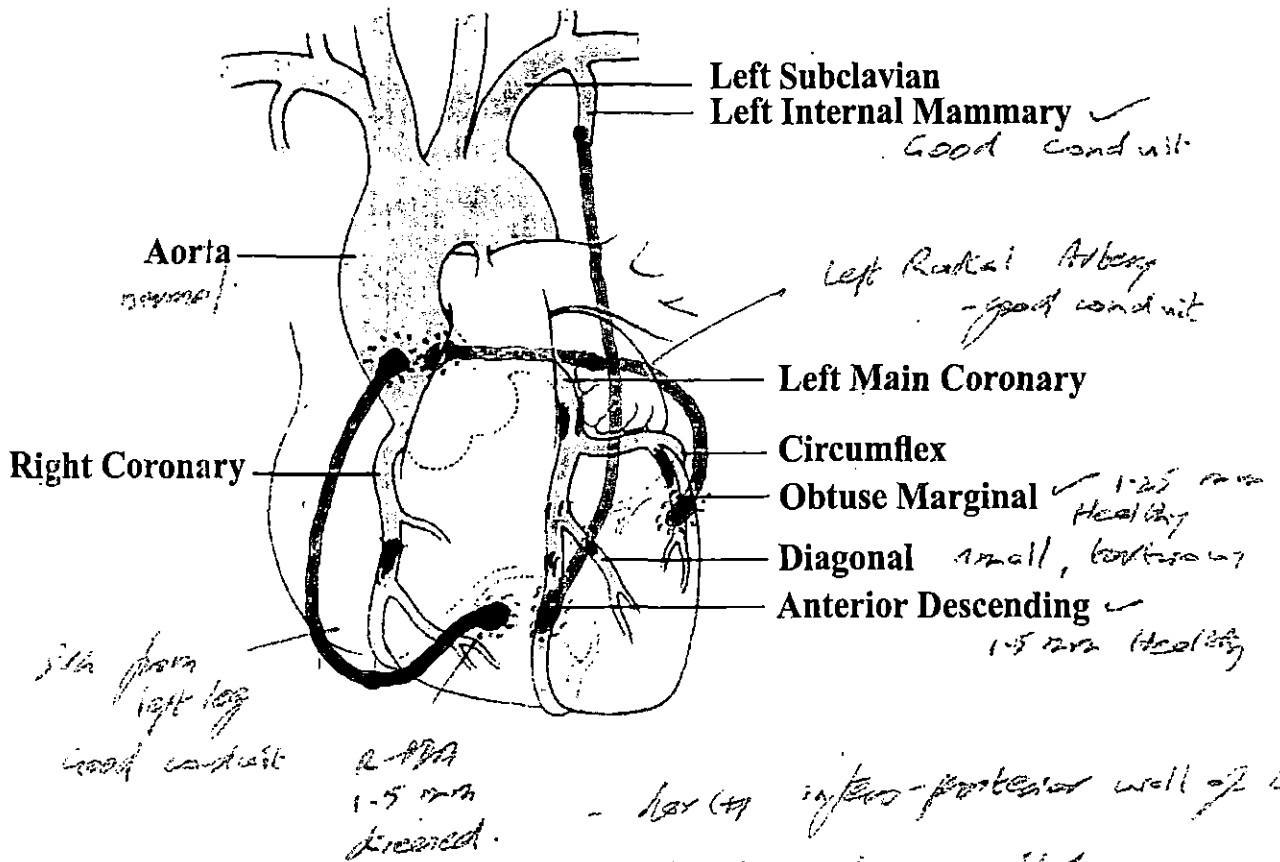 Left Subclavian
Left Internal Mammary ✓
Good conduit
Aorta
normal.
Left Radial Artery
- good conduit
Left Main Coronary
Right Coronary
Circumflex
Obtuse Marginal ✓ 1.25 mm
Healthy
Diagonal small, tortuous
Anterior Descending ✓
1.5 mm Healthy
from
left leg
Good conduit
R-PDA
1.5 mm
diseased.
- infero-posterior wall of